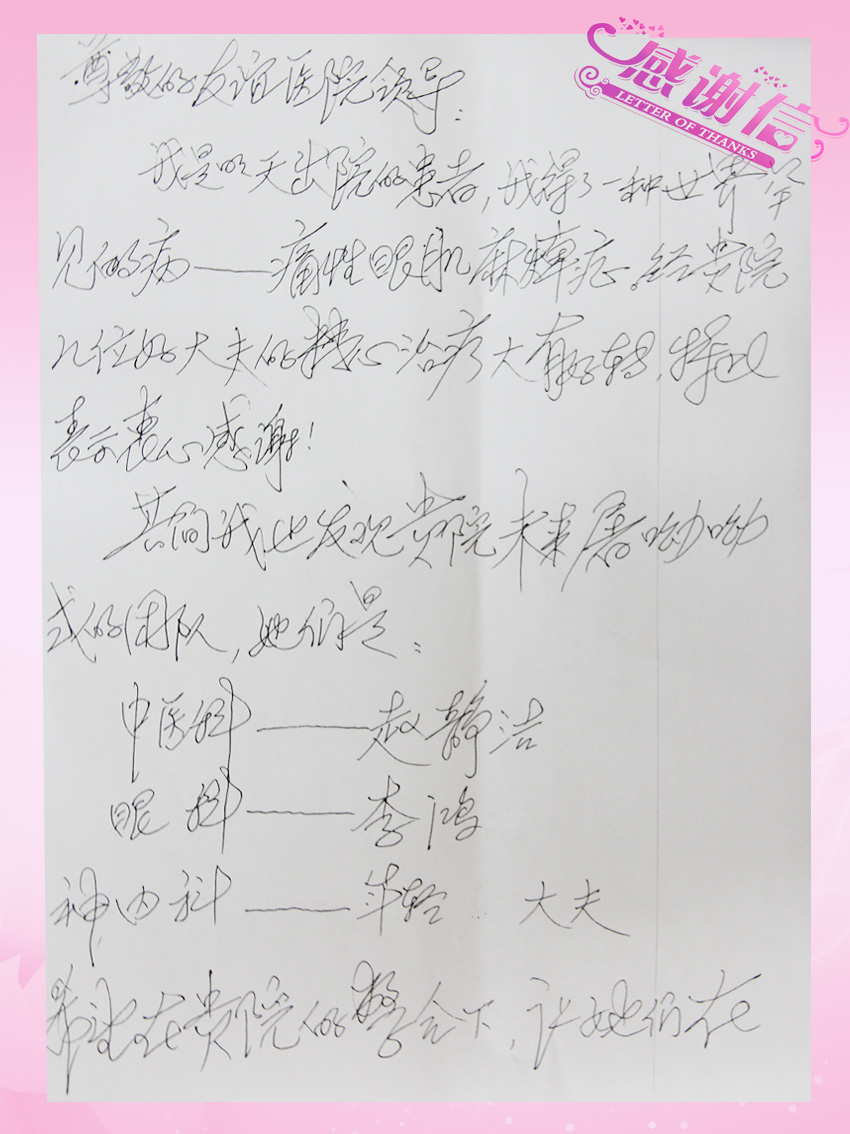 感谢信
LETTER OF THANKS
尊敬的友谊医院领导：
我是明天出院的患者，我得了一种世界罕
见的病——痛性眼肌麻痹症。经贵院
几位好大夫的精心治疗大有好转，特此
表示衷心感谢！
其间我也发现贵院未来屠呦呦
式的团队，她们是：
中医科——赵静洁
眼科——李鸿
神内科——年轻 大夫
希望在贵院的整合下，让她们在